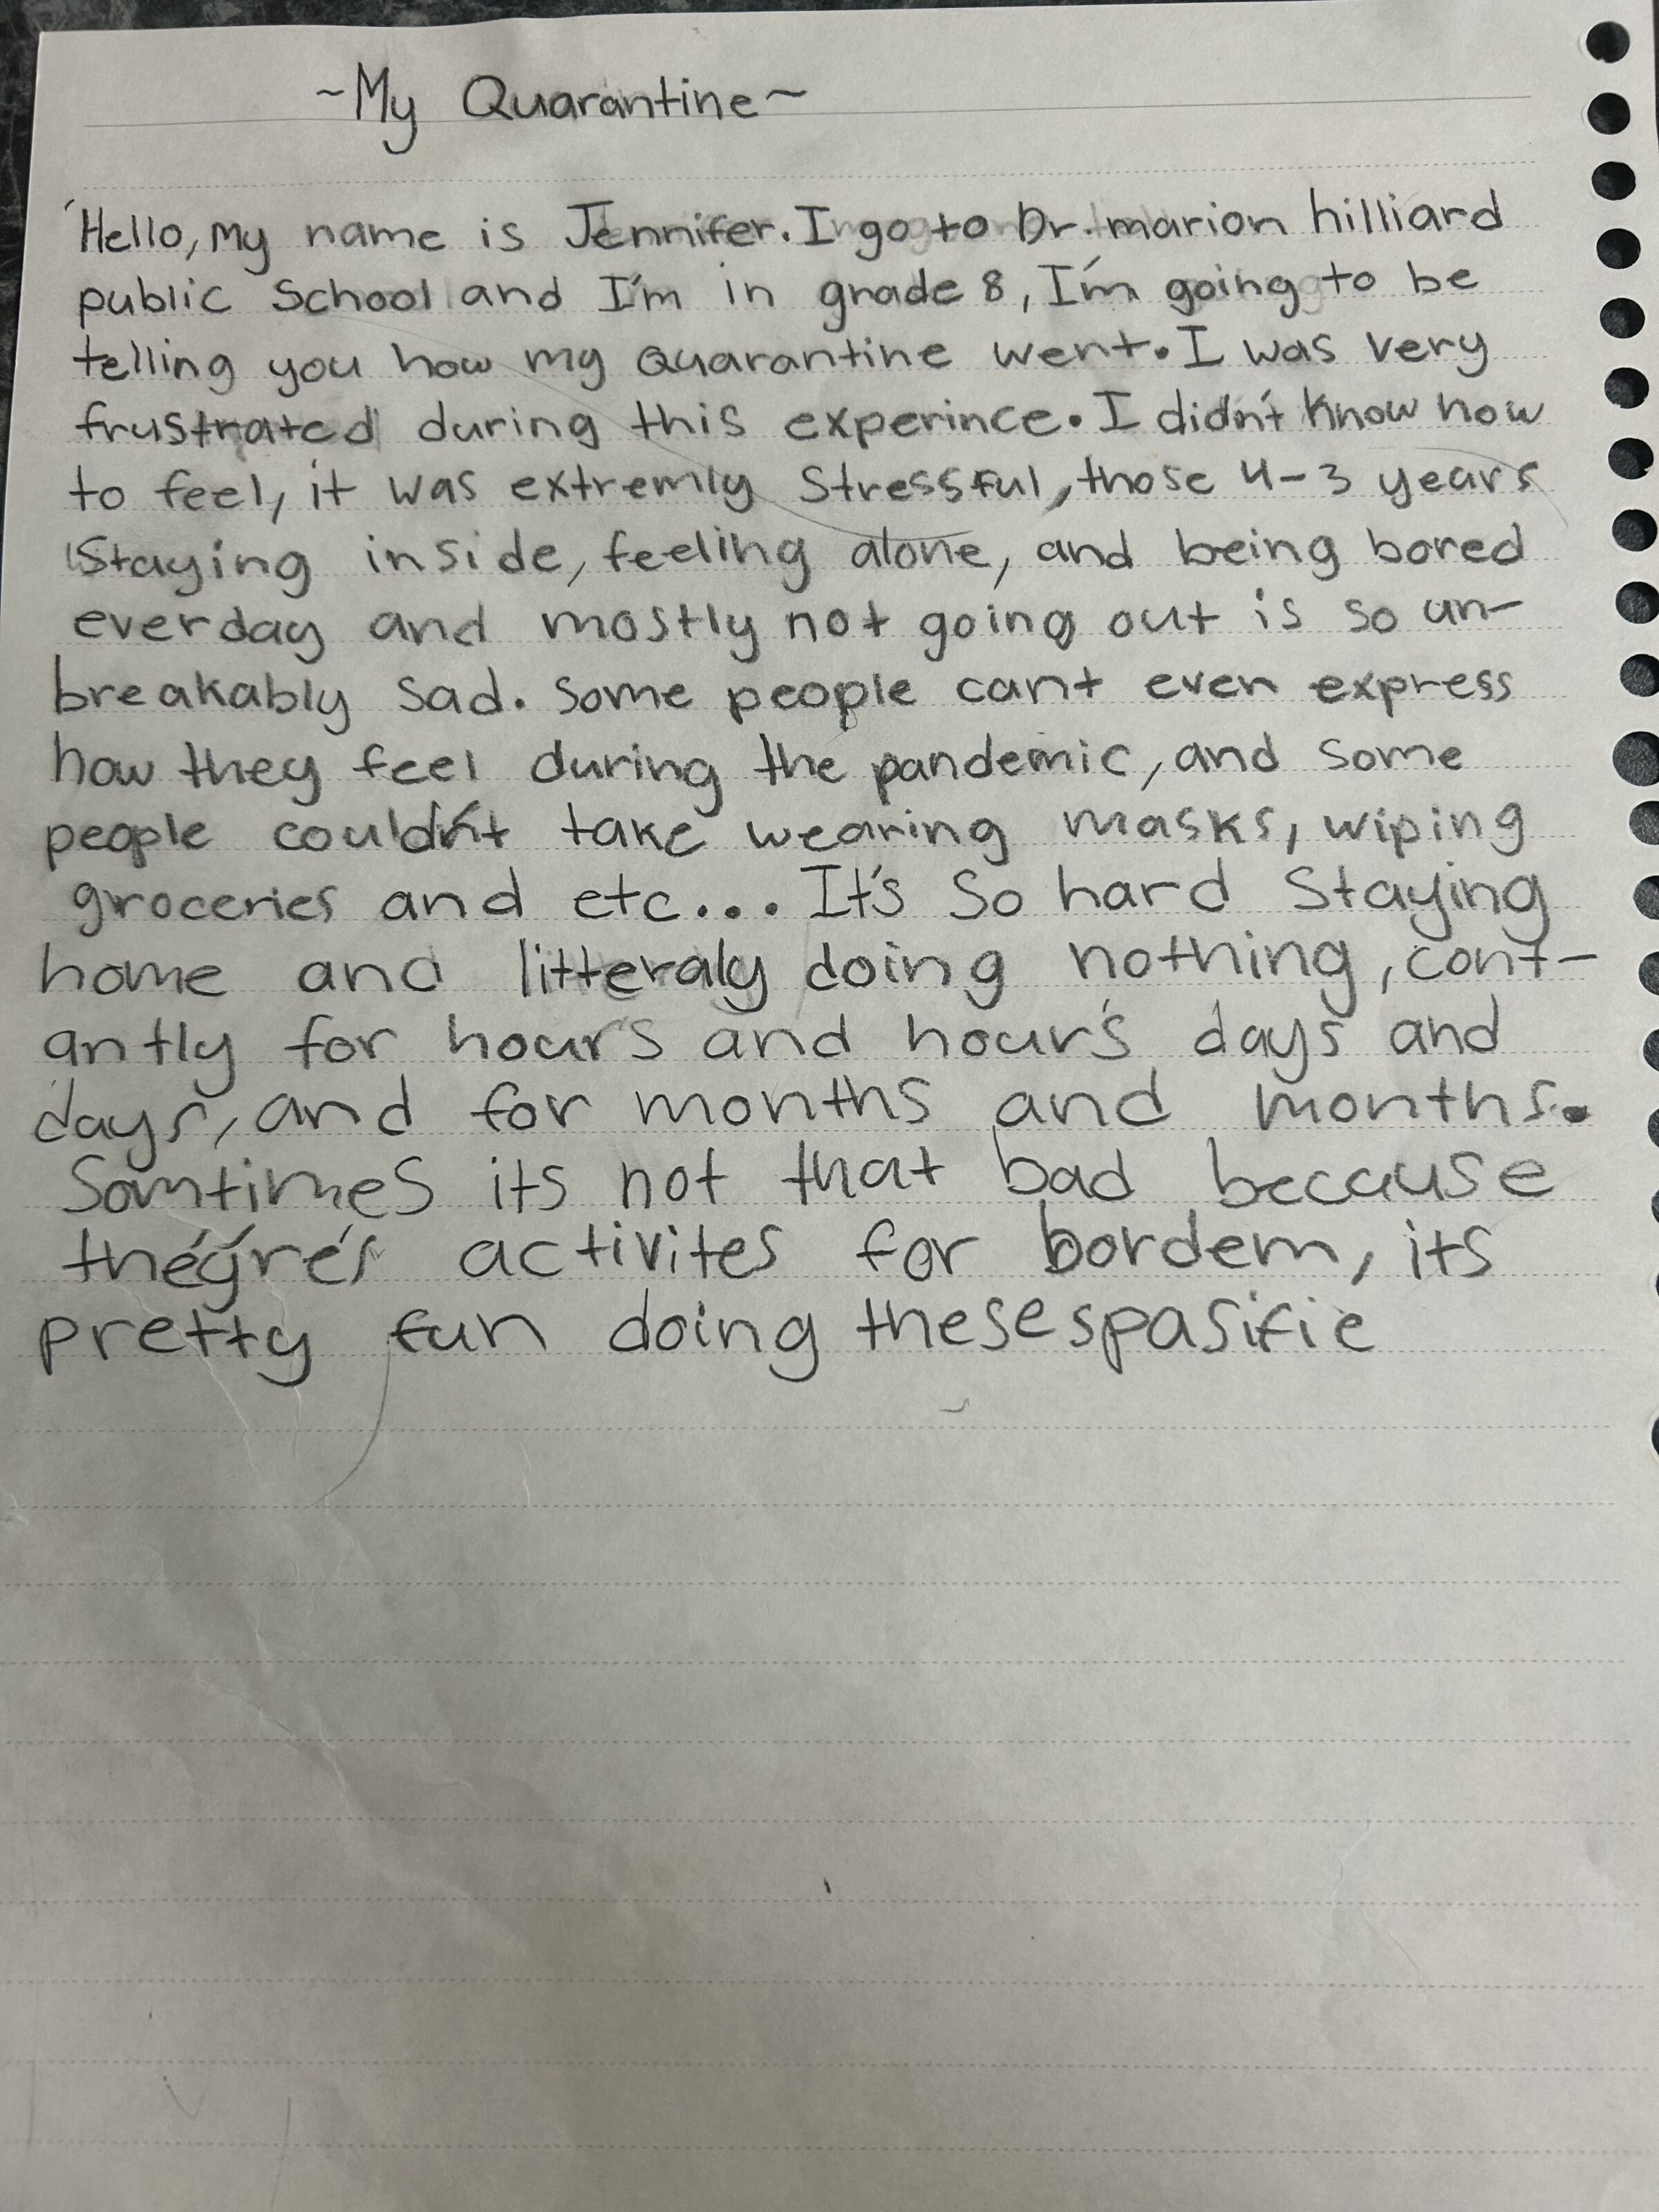 ~My Quarantine~
Hello, My name is Jennifer. I go to Dr. marion hilliard
public School and I'm in grade 8, I'm going to be
telling you how my Quarantine went. I was very
frustrated during this experince. I didn't know how
to feel, it was extremly Stressful, those 4-3 years
Staying inside, feeling alone, and being bored
everday and mostly not going out is so un-
breakably sad. Some people cant even express
how they feel during the pandemic, and some
people couldn't take wearing masks, wiping
groceries and etc... It's So hard Staying
home and litteraly doing nothing, cont-
antly for hour's and hour's days and
days, and for months and months.
Somtimes its not that bad because
they're's activites for bordem, its
pretty fun doing these spasifie